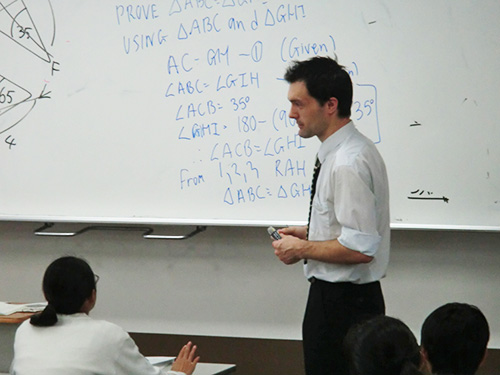 PROVE △ABC=△GHI
USING △ABC and △GHI
AC=GM -① (Given)
∠ABC=∠GIH
∠ACB=35°
∠GHI=180-(90 35°
∴∠ACB=∠GHI
From 1,2,3 RAH
△ABC=△GH
35
F
65